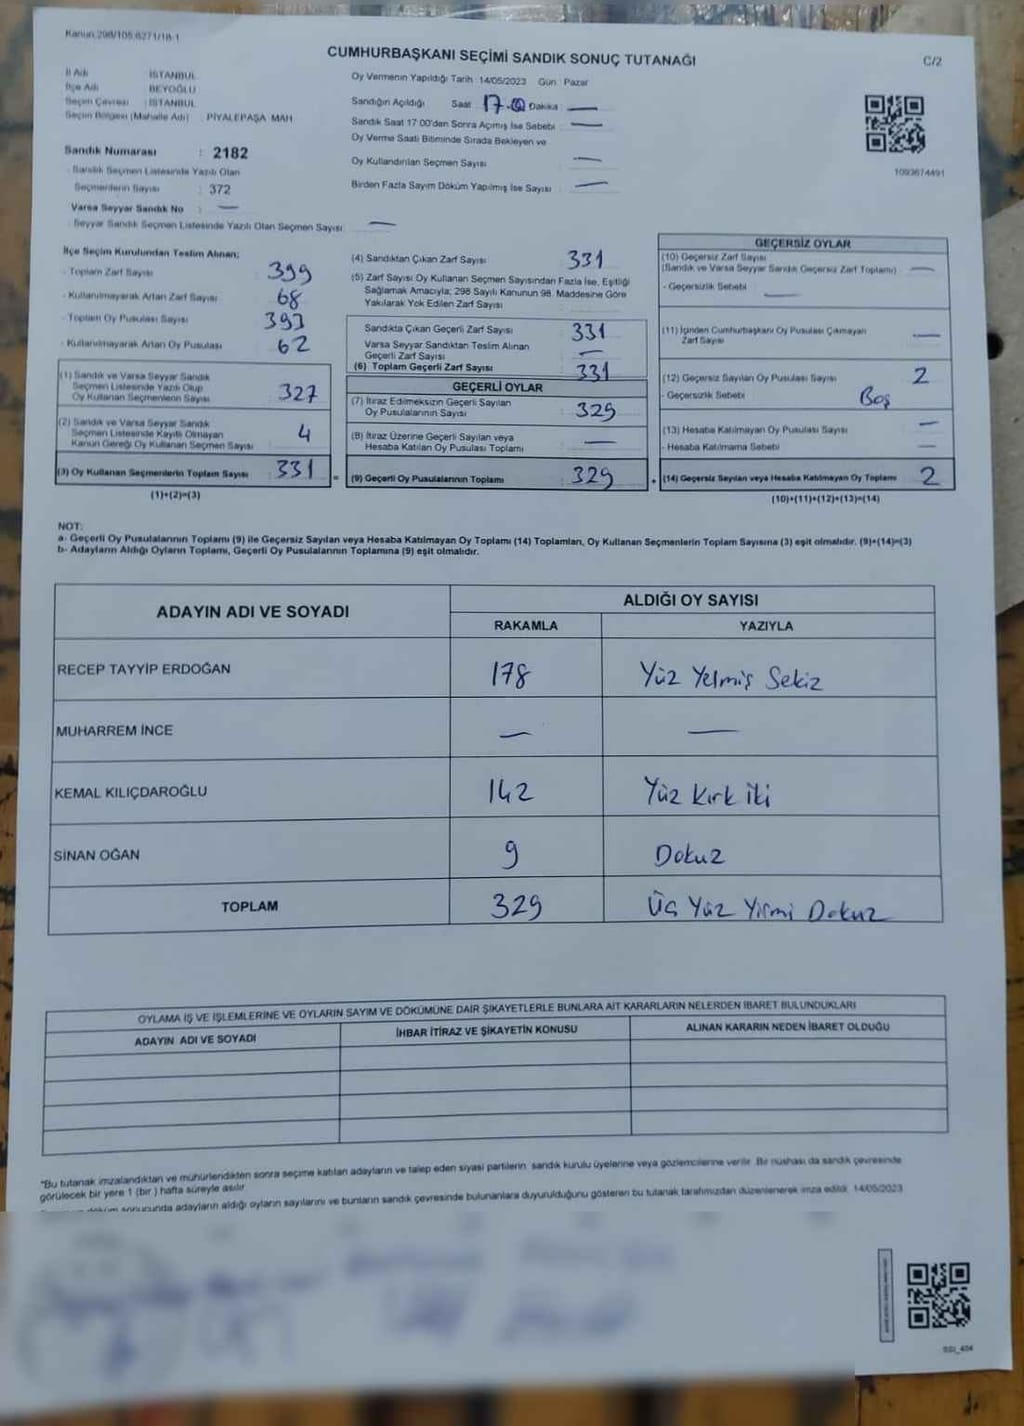 Kanun:298/105,6271/18-1
CUMHURBAŞKANI SEÇİMİ SANDIK SONUÇ TUTANAĞI
C/2
İl Adı İSTANBUL
İlçe Adı BEYOĞLU
Seçim Çevresi : İSTANBUL
Seçim Bölgesi (Mahalle Adı) : PİYALEPAŞA MAH
Sandık Numarası : 2182
Sandık Seçmen Listesinde Yazılı Olan
Seçmenlerin Sayısı : 372
Varsa Seyyar Sandık No : —
Seyyar Sandık Seçmen Listesinde Yazılı Olan Seçmen Sayısı: —
Oy Vermenin Yapıldığı Tarih : 14/05/2023 Gün : Pazar
Sandığın Açıldığı Saat 17.00 Dakika : —
Sandık Saat 17:00'den Sonra Açmış İse Sebebi : —
Oy Verme Saati Bitiminde Sırada Bekleyen ve
Oy Kullandırılan Seçmen Sayısı : —
Birden Fazla Sayım Döküm Yapılmış İse Sayısı : —
1093674491
İlçe Seçim Kurulundan Teslim Alınan;
- Toplam Zarf Sayısı : 399
- Kullanılmayarak Artan Zarf Sayısı : 68
- Toplam Oy Pusulası Sayısı : 393
- Kullanılmayarak Artan Oy Pusulası : 62
(1) Sandık ve Varsa Seyyar Sandık
Seçmen Listesinde Yazılı Olup
Oy Kullanan Seçmenlerin Sayısı : 327
(2) Sandık ve Varsa Seyyar Sandık
Seçmen Listesinde Kayıtlı Olmayan
Kanun Gereği Oy Kullanan Seçmen Sayısı : 4
(3) Oy Kullanan Seçmenlerin Toplam Sayısı : 331 =
(1)+(2)=(3)
(4) Sandıktan Çıkan Zarf Sayısı : 331
(5) Zarf Sayısı Oy Kullanan Seçmen Sayısından Fazla İse, Eşitliği
Sağlamak Amacıyla; 298 Sayılı Kanunun 98. Maddesine Göre
Yakılarak Yok Edilen Zarf Sayısı :
Sandıkta Çıkan Geçerli Zarf Sayısı : 331
Varsa Seyyar Sandıktan Teslim Alınan
Geçerli Zarf Sayısı : —
(6) Toplam Geçerli Zarf Sayısı : 331
GEÇERLİ OYLAR
(7) İtiraz Edilmeksizin Geçerli Sayılan
Oy Pusulalarının Sayısı : 329
(8) İtiraz Üzerine Geçerli Sayılan veya
Hesaba Katılan Oy Pusulası Toplamı : —
(9) Geçerli Oy Pusulalarının Toplamı : 329 +
GEÇERSİZ OYLAR
(10) Geçersiz Zarf Sayısı
(Sandık ve Varsa Seyyar Sandık Geçersiz Zarf Toplamı) : —
- Geçersizlik Sebebi : —
(11) İçinden Cumhurbaşkanı Oy Pusulası Çıkmayan
Zarf Sayısı : —
(12) Geçersiz Sayılan Oy Pusulası Sayısı : 2
- Geçersizlik Sebebi : Boş
(13) Hesaba Katılmayan Oy Pusulası Sayısı : —
- Hesaba Katılmama Sebebi : —
(14) Geçersiz Sayılan veya Hesaba Katılmayan Oy Toplamı : 2
(10)+(11)+(12)+(13)=(14)
NOT:
a- Geçerli Oy Pusulalarının Toplamı (9) ile Geçersiz Sayılan veya Hesaba Katılmayan Oy Toplamı (14) Toplamları, Oy Kullanan Seçmenlerin Toplam Sayısına (3) eşit olmalıdır. (9)+(14)=(3)
b- Adayların Aldığı Oyların Toplamı, Geçerli Oy Pusulalarının Toplamına (9) eşit olmalıdır.
ADAYIN ADI VE SOYADI ALDIĞI OY SAYISI
RAKAMLA YAZIYLA
RECEP TAYYİP ERDOĞAN 178 Yüz Yetmiş Sekiz
MUHARREM İNCE — —
KEMAL KILIÇDAROĞLU 142 Yüz Kırk iki
SİNAN OĞAN 9 Dokuz
TOPLAM 329 Üç Yüz Yirmi Dokuz
OYLAMA İŞ VE İŞLEMLERİNE VE OYLARIN SAYIM VE DÖKÜMÜNE DAİR ŞİKAYETLERLE BUNLARA AİT KARARLARIN NELERDEN İBARET BULUNDUKLARI
ADAYIN ADI VE SOYADI İHBAR İTİRAZ VE ŞİKAYETİN KONUSU ALINAN KARARIN NEDEN İBARET OLDUĞU
"Bu tutanak imzalandıktan ve mühürlendikten sonra seçime katılan adayların ve talep eden siyasi partilerin sandık kurulu üyelerine veya gözlemcilerine verilir. Bir nüshası da sandık çevresinde
görülecek bir yere 1 (bir ) hafta süreyle asılır.
döküm sonucunda adayların aldığı oyların sayılarını ve bunların sandık çevresinde bulunanlara duyurulduğunu gösteren bu tutanak tarafımızdan düzenlenerek imza edildi. 14/05/2023